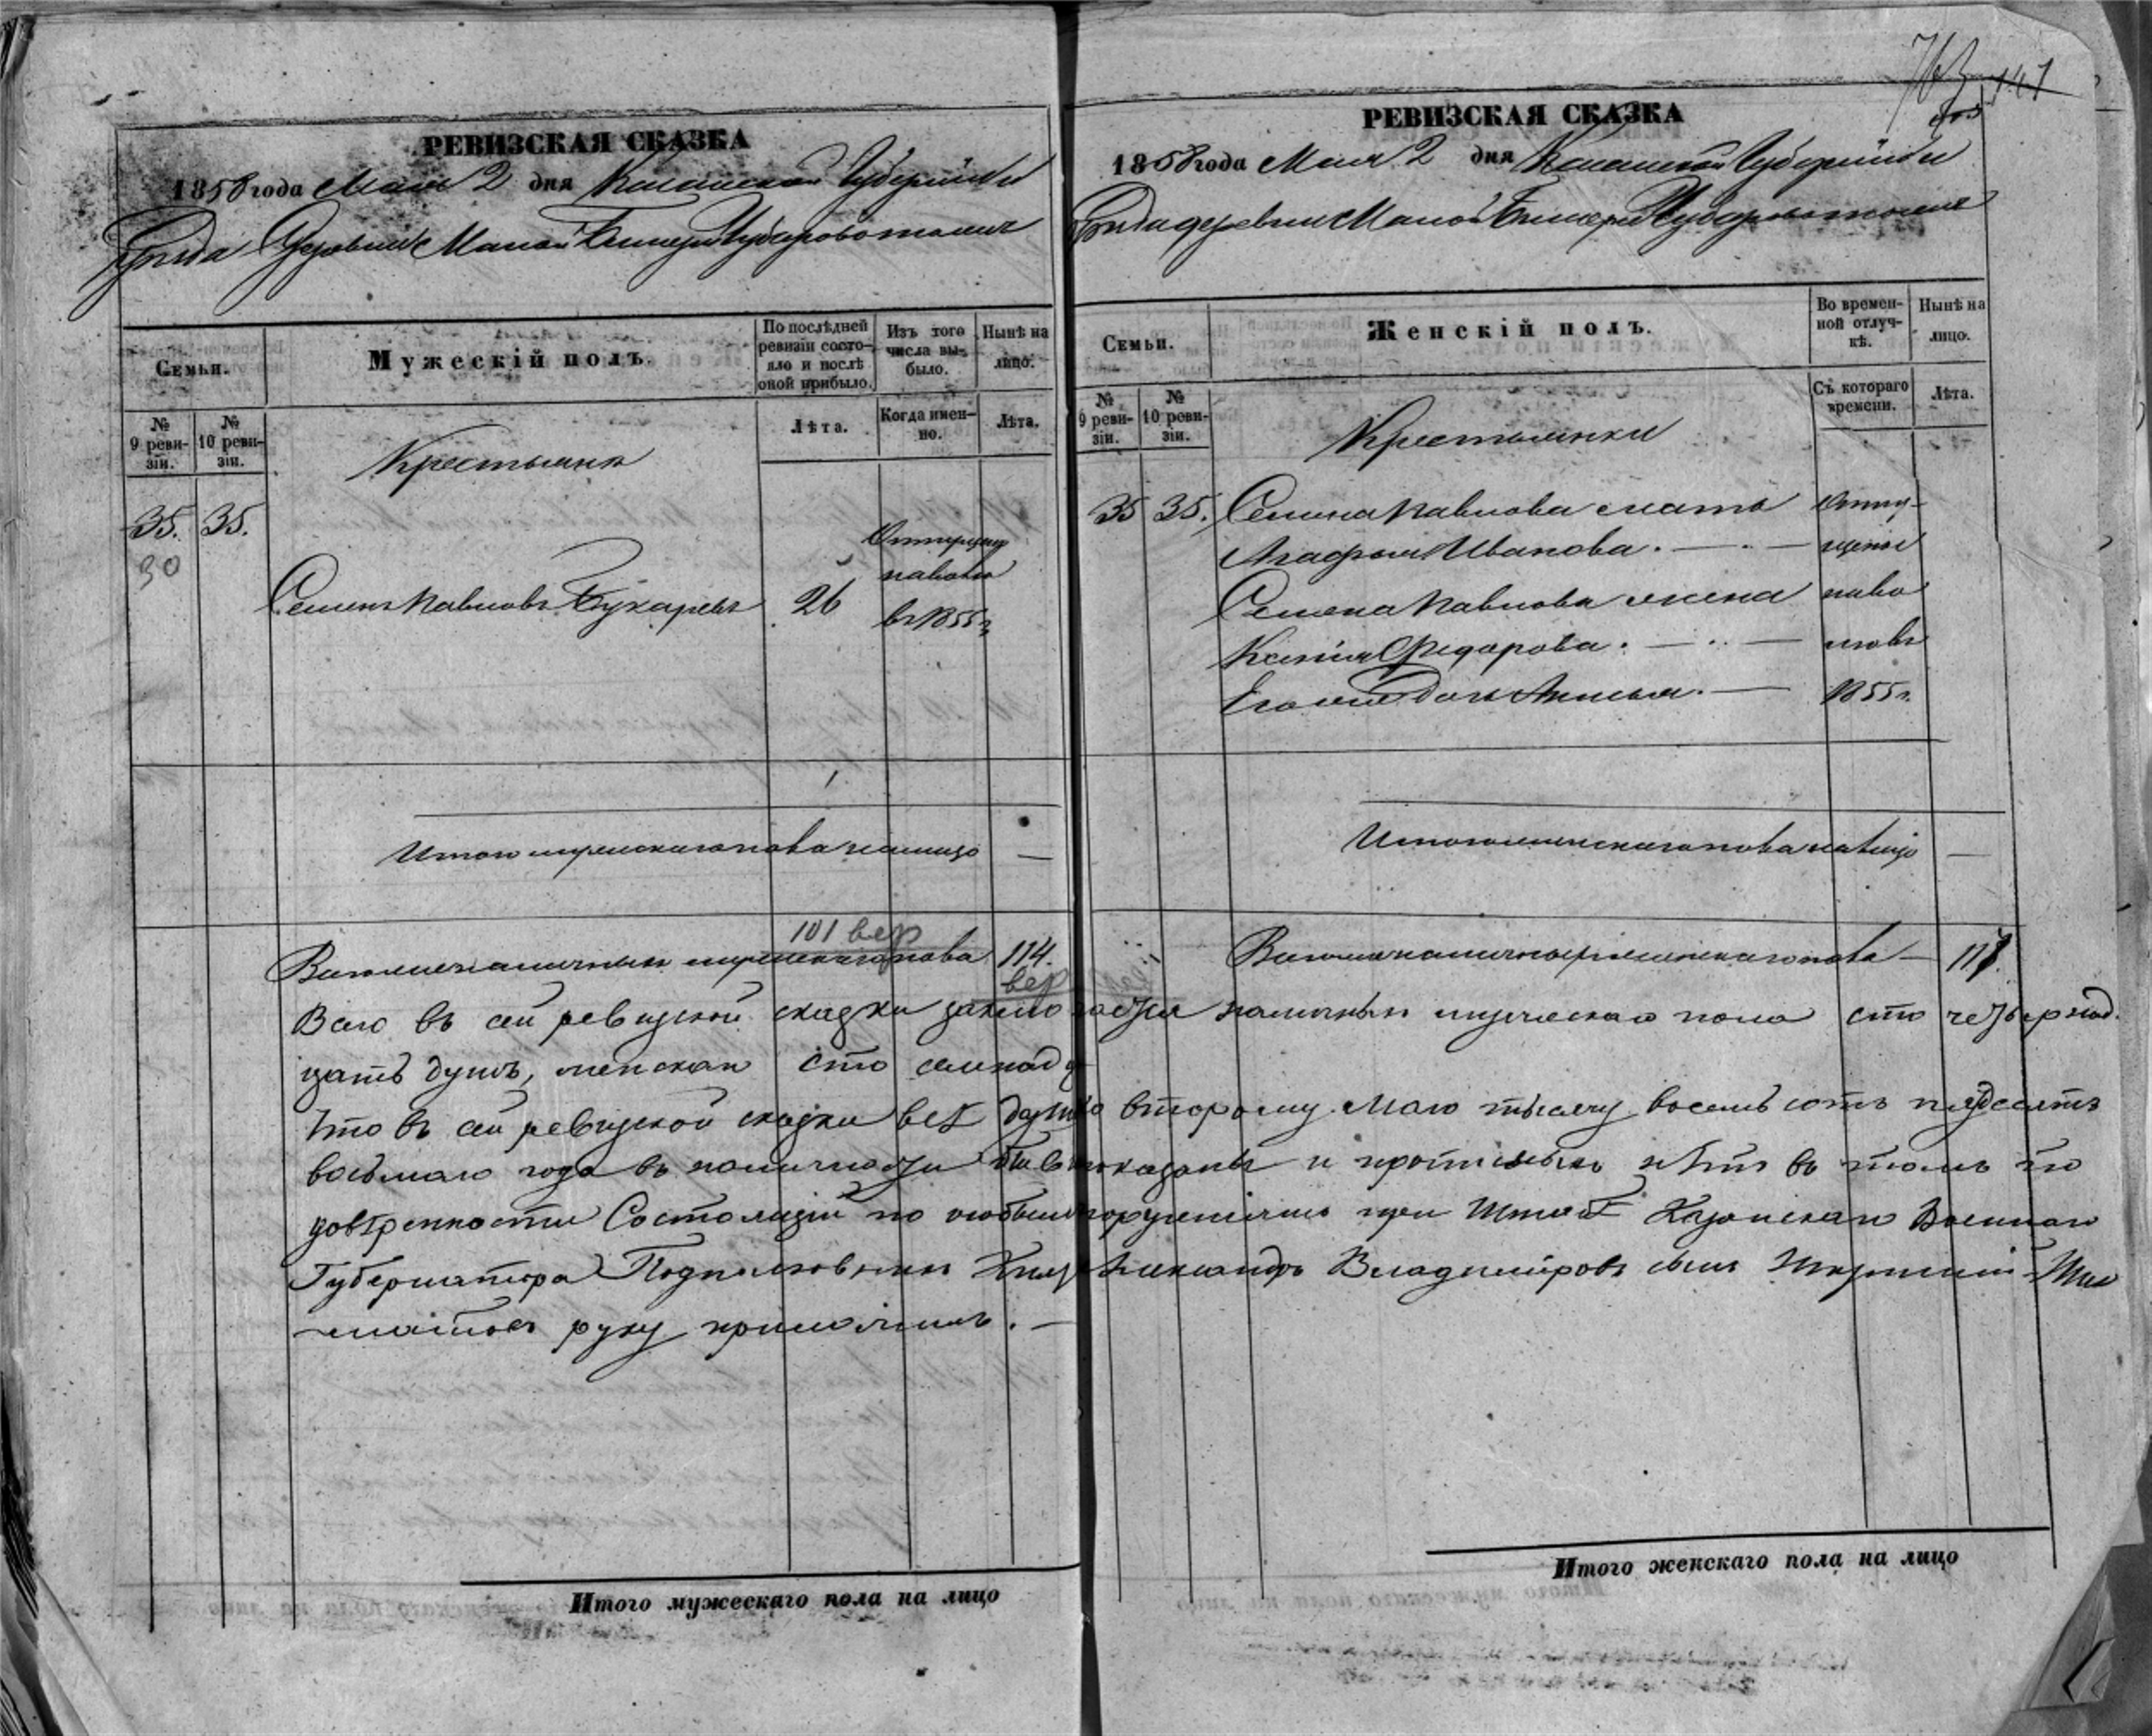 РЕВИЗСКАЯ СКАЗКА
1858 года Мая 2 дня Казанской Губерніи
Уѣзда Деревни Малой
Семьи.
Мужескій полъ.
По послѣдней ревизіи состояло и послѣ оной прибыло.
Изъ того числа выбыло.
Нынѣ на лицо.
№ 9 ревизіи.
№ 10 ревизіи.
Лѣта.
Когда именно.
Лѣта.
Крестьяне
35. 35.
30
Семенъ Павловъ Бухаревъ 26
Отпущен на волю въ 1855 г
1
Итого мужескаго пола на лицо —
101 вер
Всего наличныхъ мужескаго пола 114.
вер
РЕВИЗСКАЯ СКАЗКА
763 141
1858 года Мая 2 дня Казанской Губерніи
Уѣзда деревни Малой
Семьи.
Женскій полъ.
Во временной отлучкѣ.
Нынѣ на лицо.
№ 9 ревизіи.
№ 10 ревизіи.
Съ котораго времени.
Лѣта.
Крестьянки
35 35. Семена Павлова мать Отпу-
Агафья Иванова. — щены
Семена Павлова жена на во
Ксенія Федорова. — лю въ
Его дочь Анисья. — 1855 г.
Итого женскаго пола на лицо —
Всего наличныхъ женскаго пола — 117.
Всего въ сей ревизской сказки заключается наличныхъ мужескаго пола сто четырнад.
цать душъ, женскаго сто семнадц
Что въ сей ревизской сказки всѣ души ко второму Маю тысячу восемь сотъ пятдесятъ
восьмаго года въ наличности показаны и прописныхъ нѣтъ въ томъ по
довѣренности Состоящій по особымъ порученіямъ при Штабѣ Казанскаго Военнаго
Губернатора Подполковникъ Князь Александръ Владиміровъ сынъ
руку приложилъ. —
Итого мужескаго пола на лицо
Итого женскаго пола на лицо